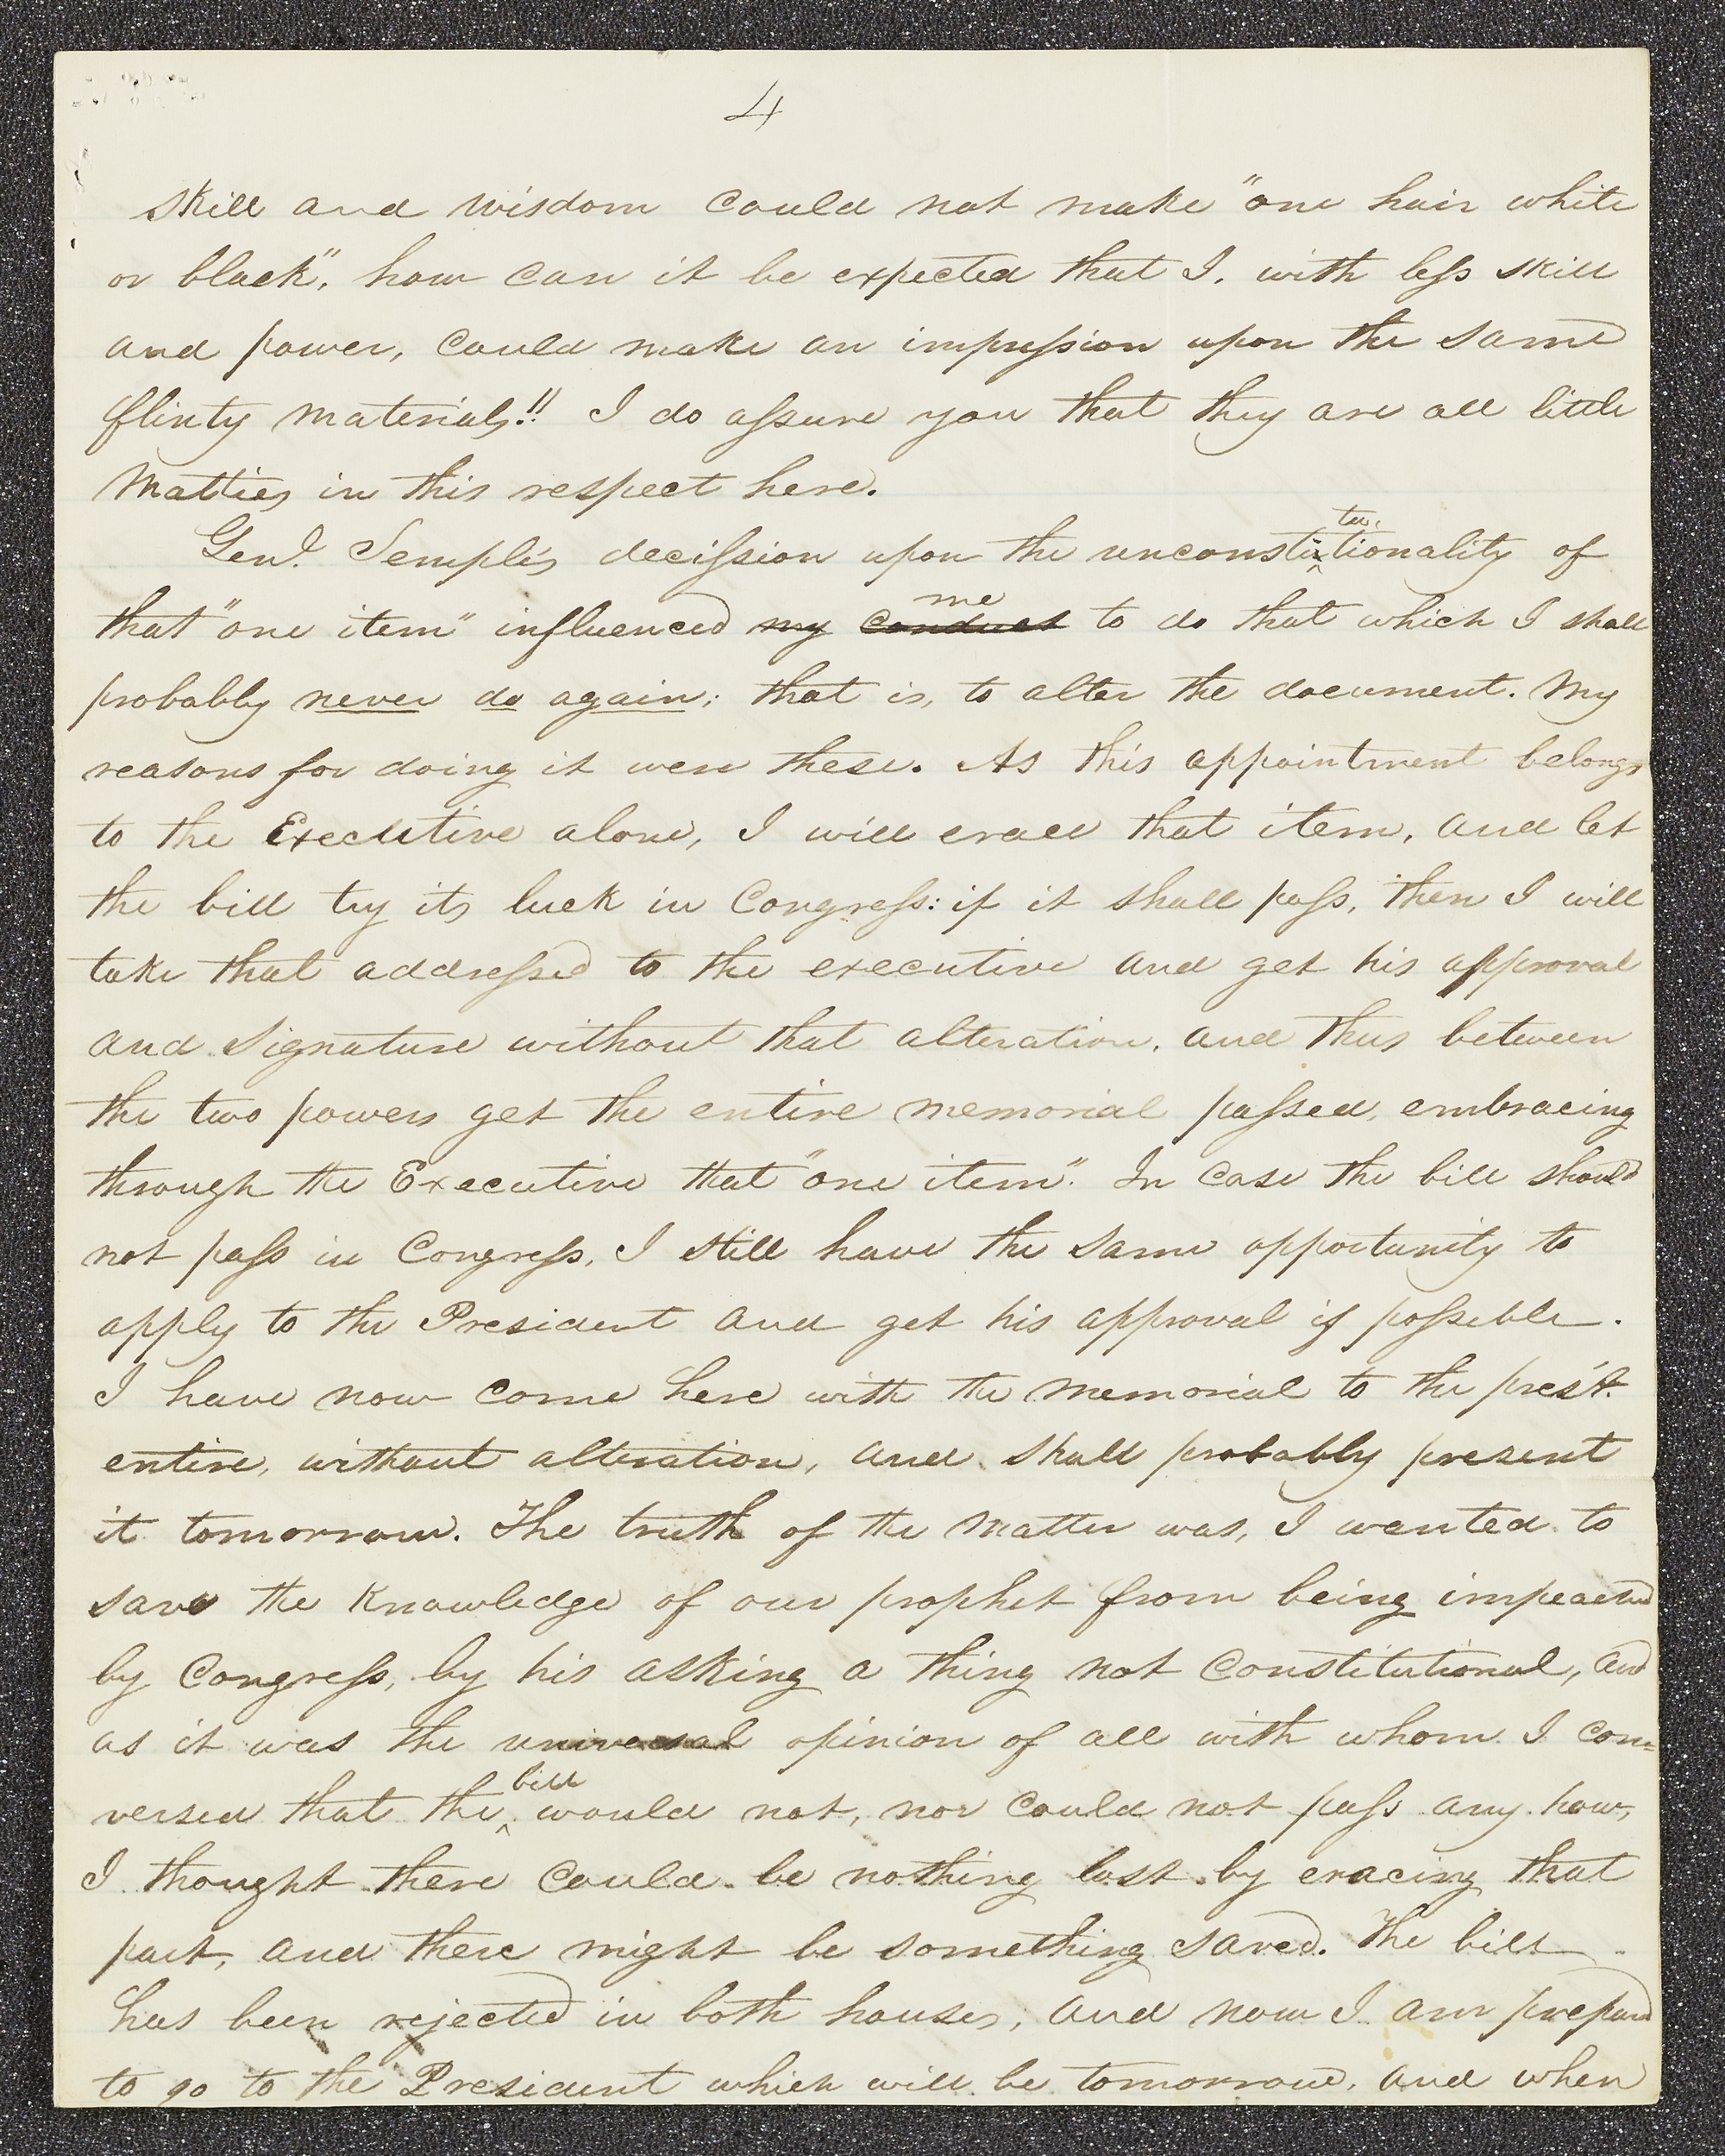 4
skill and wisdom could not make "one hair white
or black", how can it be expected that I, with less skill
and power, could make an impression upon the same
flinty materials!! I do assure you that they are all little
Matties in this respect here.
Genl. Semple's decission upon the unconstitutionality of
that "one item" influenced my conduct me to do that which I shall
probably never do again; that is, to alter the document. My
reasons for doing it were these. As this appointment belongs
to the Executive alone, I will erace that item, and let
the bill try its luck in Congress: if it shall pass, then I will
take that addressed to the executive and get his approval
and signature without that alteration, and thus between
the two powers get the entire memorial passed, embracing
through the Executive that "one item". In case the bill should
not pass in Congress, I still have the same opportunity to
apply to the President and get his approval if possible.
I have now come here with the memorial to the pres't.
entire, without alteration, and shall probably present
it tomorrow. The truth of the matter was, I wanted to
save the knowledge of our prophet from being impeached
by Congress, by his asking a thing not constitutional, and
as it was the universal opinion of all with whom I con=
versed that the bill would not, nor could not pass any how,
I thought there could be nothing lost by eracing that
part, and there might be something saved. The bill
has been rejected in both houses; and now I am prepared
to go to the President which will be tomorrow, and when